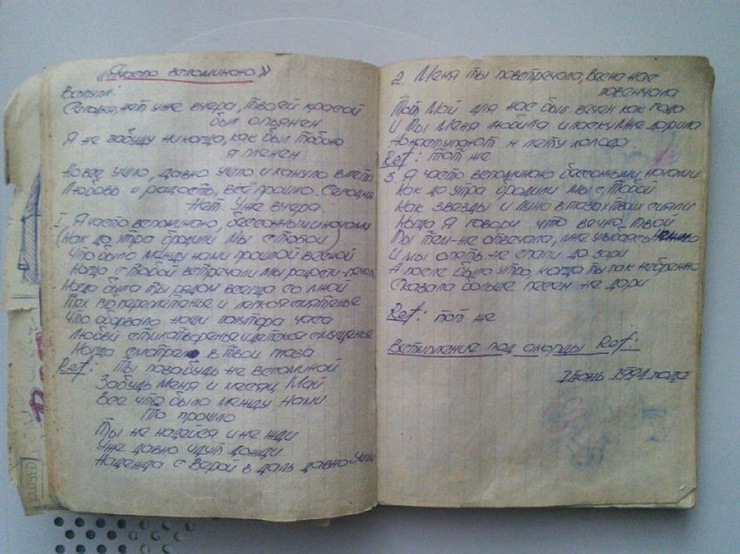 «Часто вспоминаю»
Вступл:
Сегодня, нет уже вчера, твоей красой
был опьянен
Я не забуду никогда, как был тобою
я пленен
Но все ушло, давно ушло и кануло в лето
Любовь и радость, всё прошло. Сегодня
нет. Уже вчера.
I. Я часто вспоминаю, бессонными ночами
(Как до утра бродили мы с тобой)
Что было между нами прошлой весной
Когда с тобой встречали мы радости-печали
Когда была ты рядом всегда со мной
Тех рук переплетенье и легкое смятенье
Что оборвало наши полтора часа
Любви стихотворенье и детское смущенье
Когда смотрел в твои глаза
Ref: Ты позабудь не вспоминай
Забудь меня и месяц Май
Все что было между нами
То прошло
Ты не надейся и не жди
Уже давно идут дожди
Надежда с Верой в даль давно ушли
2. Меня ты повстречала, Весна нас
повенчала
Тот Май для нас был вечен как года
И ты меня любила и ласку мне дарила
Но наступают к лету холода
Ref: тот же
3. Я часто вспоминаю бессонными ночами
Как до утра бродили мы с тобой
Как звезды и луна в глазах твоих сияли
Когда я говорил что вечно твой
Ты тем-не отвечала, мне улыбаясь нежно
И мы опять не спали до зари
А после было утро, когда ты так небрежно
Сказала больше песен не дари
Ref: тот же
Вступление под аккорды Ref:
Июнь 1991 года